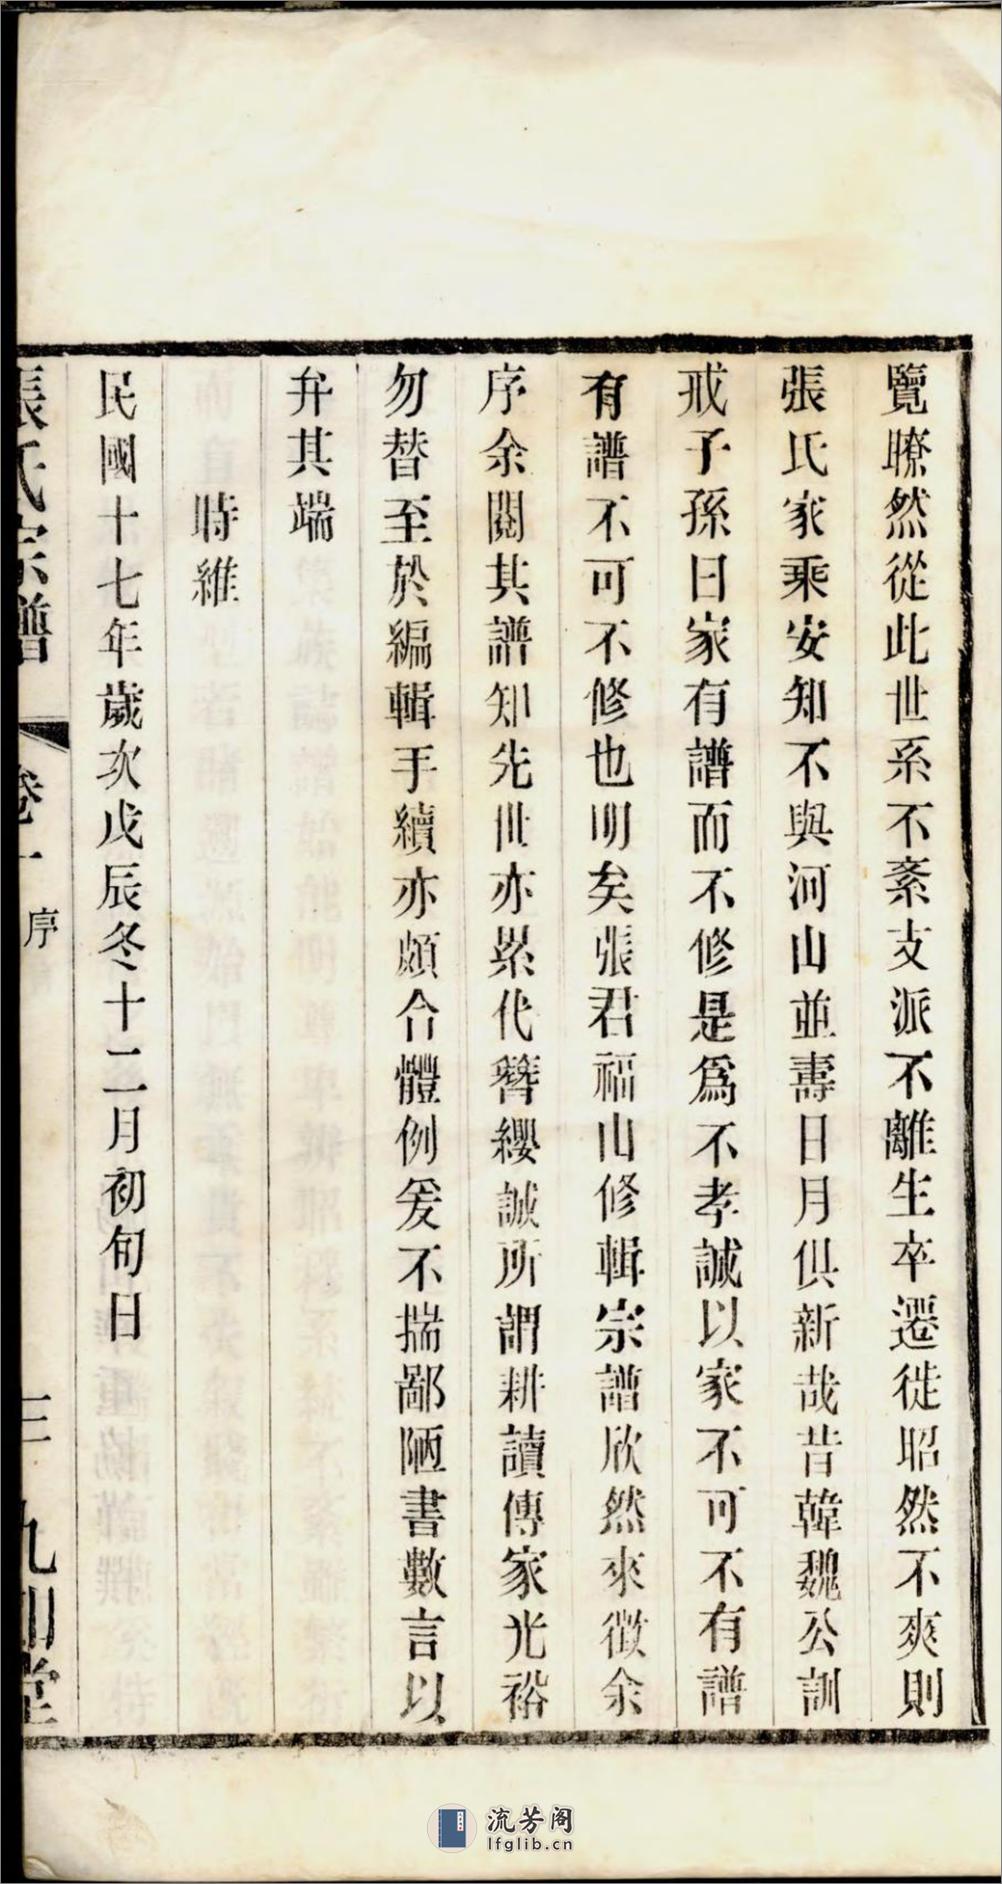 覽瞭然從此世系不紊支派不離生卒遷徙昭然不爽則
張氏家乘安知不與河山並壽日月俱新哉昔韓魏公訓
戒子孫曰家有譜而不修是爲不孝誠以家不可不有譜
有譜不可不修也明矣張君福山修輯宗譜欣然來徵余
序余閱其譜知先世亦累代簪纓誠所謂耕讀傳家光裕
勿替至於編輯手續亦頗合體例爰不揣鄙陋書數言以
弁其端
時維
民國十七年歲次戊辰冬十二月初旬日
張氏宗譜
卷一
序
三
九如堂
流芳阁
lfglib.cn